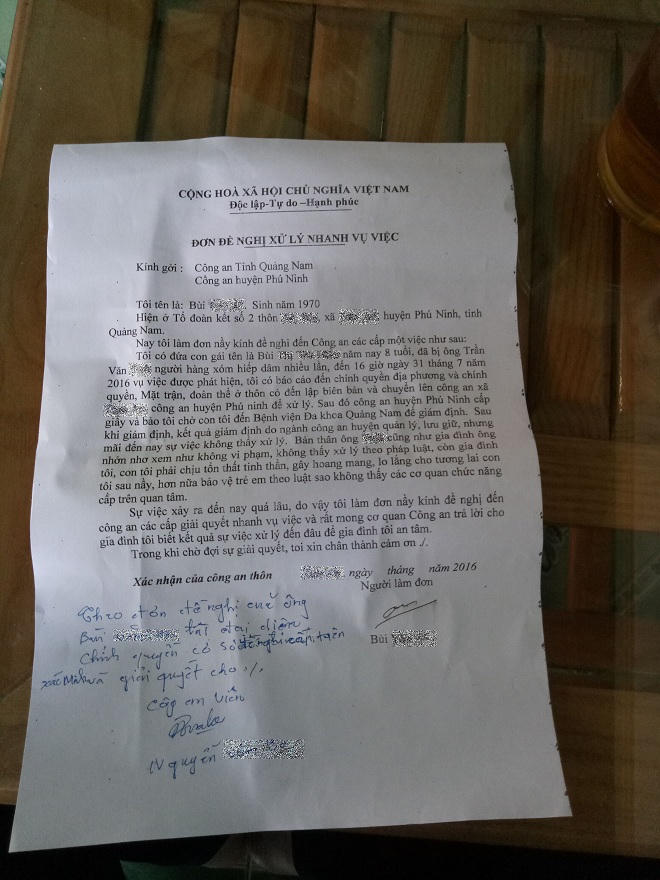 CỘNG HOÀ XÃ HỘI CHỦ NGHĨA VIỆT NAM
Độc lập-Tự do –Hạnh phúc
ĐƠN ĐỀ NGHỊ XỬ LÝ NHANH VỤ VIỆC
Kính gởi : Công an Tỉnh Quảng Nam
Công an huyện Phú Ninh
Tôi tên là: Bùi Sinh năm 1970
Hiện ở Tổ đoàn kết số 2 thôn , xã huyện Phú Ninh, tỉnh
Quảng Nam.
Nay tôi làm đơn nầy kính đề nghị đến Công an các cấp một việc như sau:
Tôi có đứa con gái tên là Bùi năm nay 8 tuổi, đã bị ông Trần
Văn người hàng xóm hiếp dâm nhiều lần, đến 16 giờ ngày 31 tháng 7 năm
2016 vụ việc được phát hiện, tôi có báo cáo đến chính quyền địa phương và chính
quyền, Mặt trận, đoàn thể ở thôn có đến lập biên bản và chuyển lên công an xã
công an huyện Phú ninh để xử lý. Sau đó công an huyện Phú Ninh cấp
giấy và bảo tôi chở con tôi đến Bệnh viện Đa khoa Quảng Nam để giám định. Sau
khi giám định, kết quả giám định do ngành công an huyện quản lý, lưu giữ, nhưng
mãi đến nay sự việc không thấy xử lý. Bản thân ông cũng như gia đình ông
nhởn nhơ xem như không vi phạm, không thấy xử lý theo pháp luật, còn gia đình
tôi, con tôi phải chịu tổn thất tinh thần, gây hoang mang, lo lắng cho tương lai con
tôi sau nầy, hơn nữa bảo vệ trẻ em theo luật sao không thấy các cơ quan chức năng
cấp trên quan tâm.
Sự việc xảy ra đến nay quá lâu, do vậy tôi làm đơn nầy kính đề nghị đến
công an các cấp giải quyết nhanh vụ việc và rất mong cơ quan Công an trả lời cho
gia đình tôi biết kết quả sự việc xử lý đến đâu để gia đình tôi an tâm.
Trong khi chờ đợi sự giải quyết, toi xin chân thành cảm ơn ./.
Xác nhận của công an thôn ngày tháng năm 2016
Người làm đơn
Theo đơn đề nghị của ông
Bùi
Chính quyền có
giải quyết cho ./.
Công an viên
Bùi
quyền